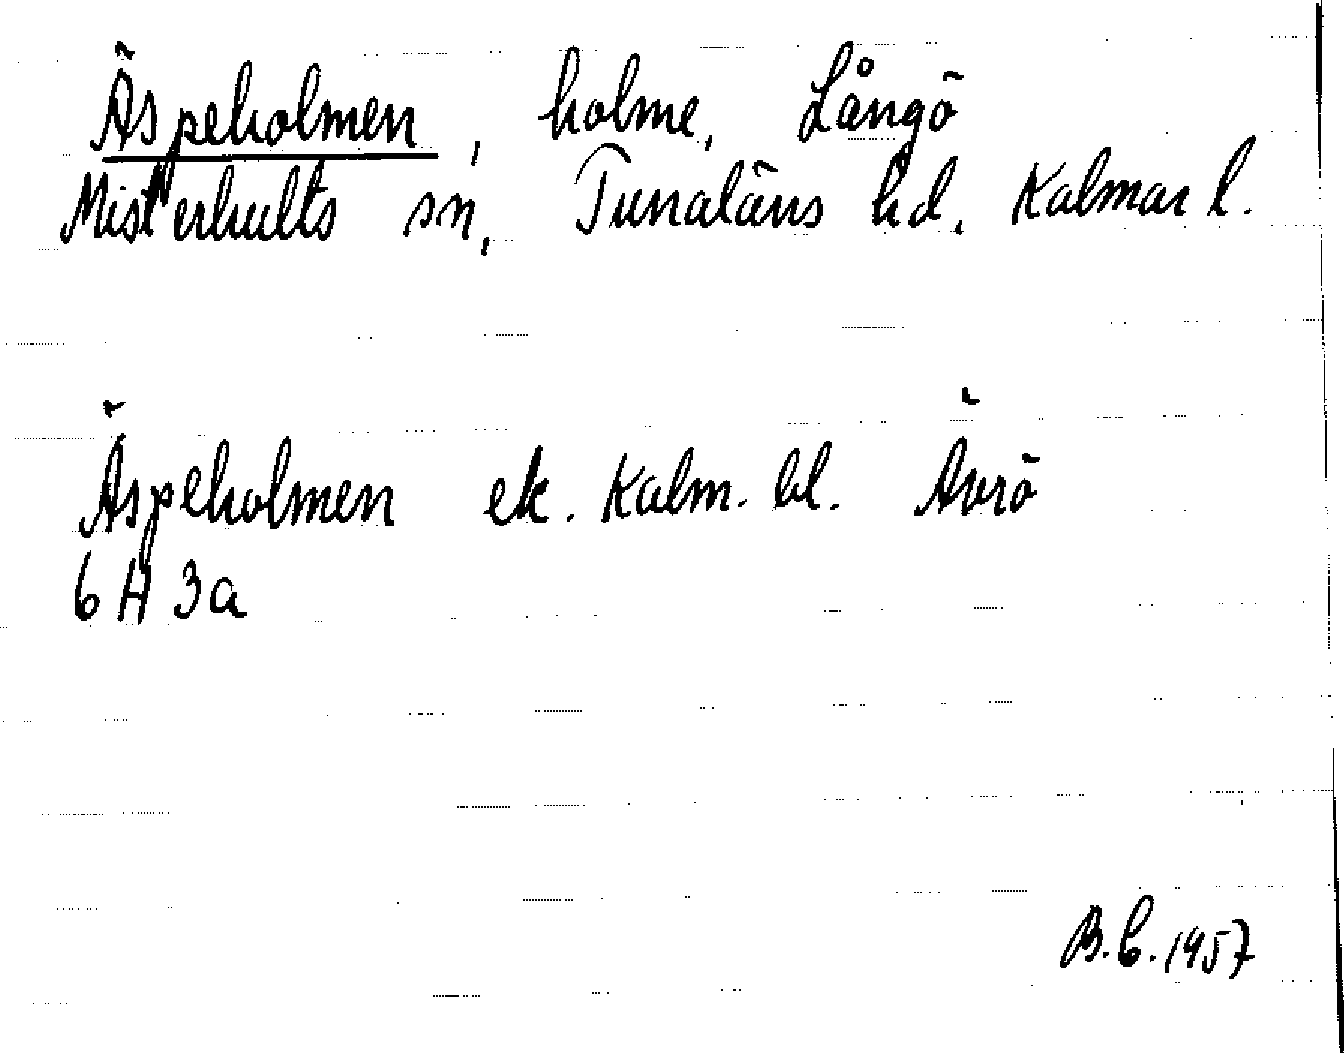 Äspeholmen, holme, Långö
Misterhults sn, Tunaläns hd. Kalmar l.
Äspeholmen ek. Kalm. bl. Ävrö
6 H 3a
B.C. 1957